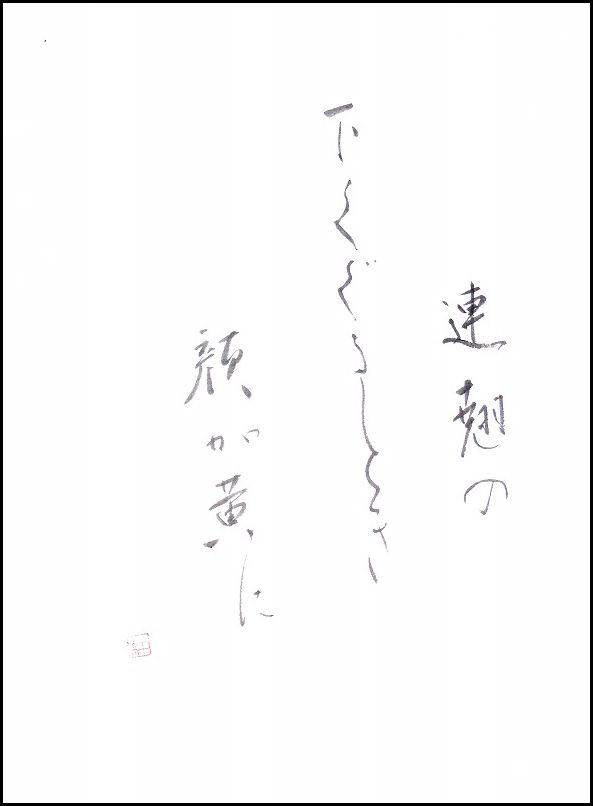 連翹の
下くぐるとき
顔が黄に